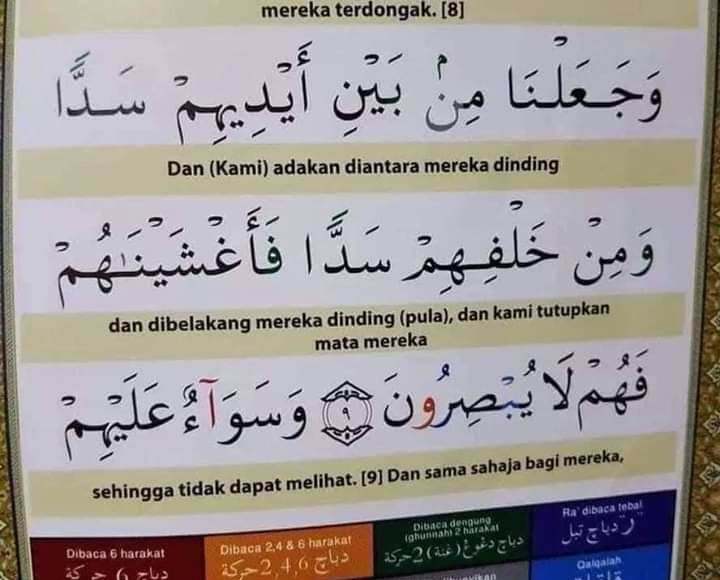 mereka terdongak. [8]
وَجَعَلْنَا مِنۢ بَيْنِ أَيْدِيهِمْ سَدًّا
Dan (Kami) adakan diantara mereka dinding
وَمِنْ خَلْفِهِمْ سَدًّا فَأَغْشَيْنَـٰهُمْ
dan dibelakang mereka dinding (pula), dan kami tutupkan
mata mereka
فَهُمْ لَا يُبْصِرُونَ ٩ وَسَوَآءٌ عَلَيْهِمْ
sehingga tidak dapat melihat. [9] Dan sama sahaja bagi mereka,
Dibaca 6 harakat
دباچ 6 حركة
Dibaca 2,4 & 6 harakat
دباچ 2,4,6 حركة
Dibaca dengung
(ghunnah) 2 harakat
دباچ دغوغ (غنة) 2 حركة
Ra' dibaca tebal
ر دباچ تبل
Qalqalah